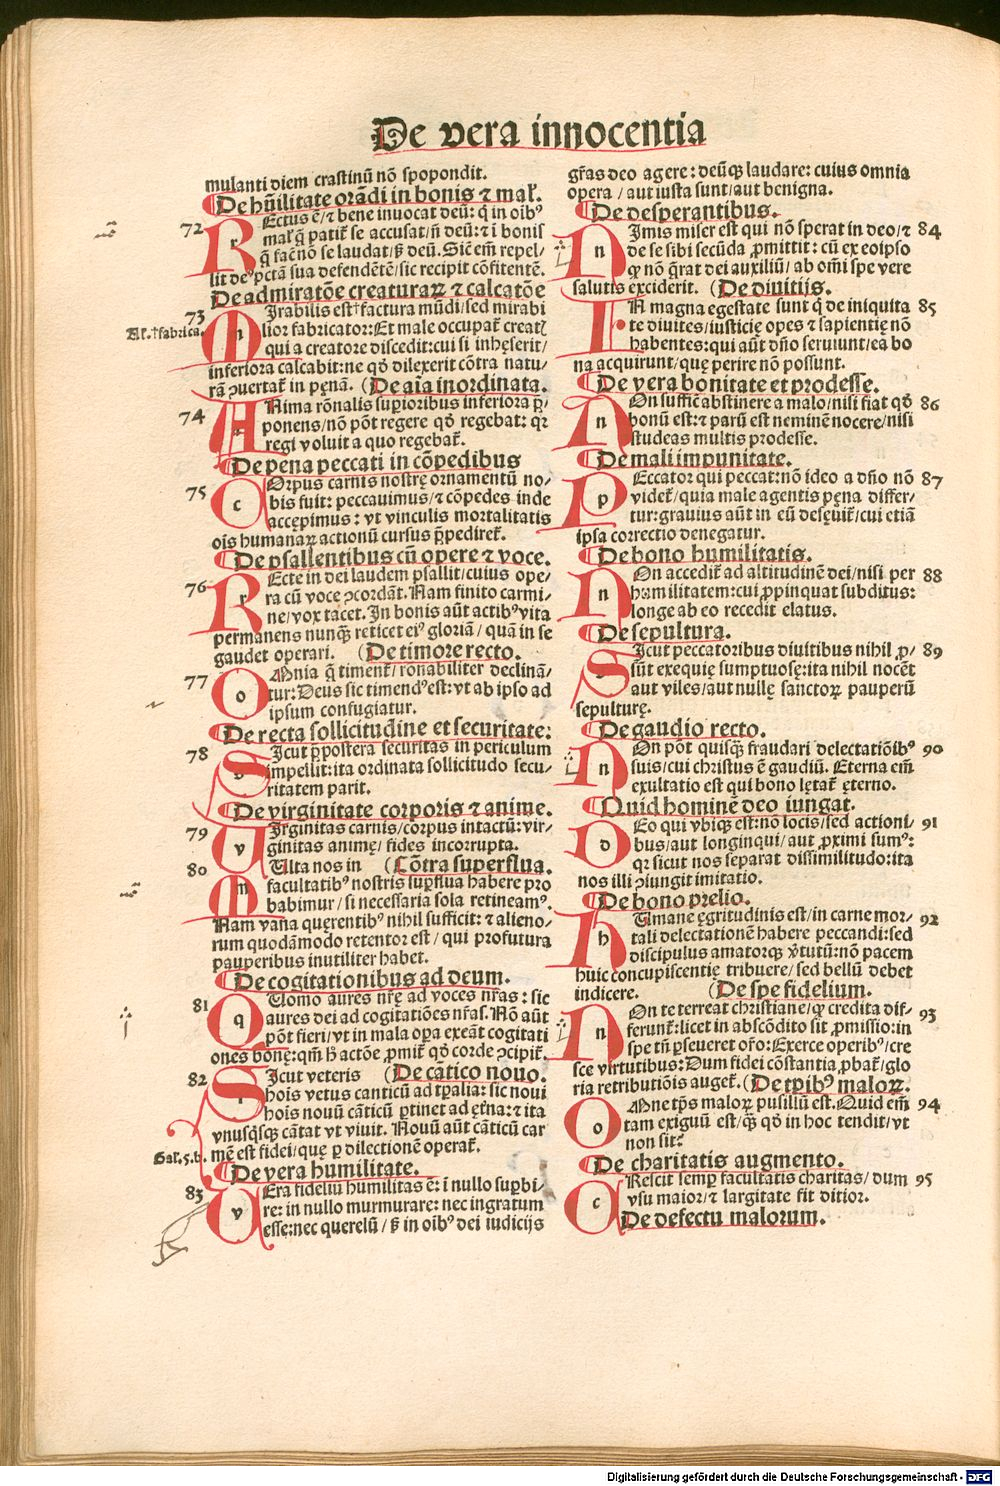 De vera innocentia
mulanti diem crastinū nō spopondit.
De hūilitate orādi in bonis ⁊ mal̛.
72 REctus ē/⁊ bene inuocat deū: q̇ in oib⁹
mal̛ q̄ patit̛ se accusat/nō deū:⁊ ī bonis
q̄ facit nō se laudat/ꝫ deū. Sic em̄ repel/
lit de⁹ pctā sua defendētē/sic recipit cōfitentē.
De admiratōe creaturaꝝ ⁊ calcatōe
73 MIrabilis est†factura mūdi/sed mirabi
Al̛.†fabrica.
lior fabricator: Et male occupat̛ creat̛
qui a creatore discedit: cui si inhęserit/
inferiora calcabit: ne qd̛ dilexerit cōtra natu/
rā ꝯuertat̛ in pęnā. (De aīa inordinata.
74 ANima rōnalis suꝑioribus inferiora p̄/
ponens/nō pōt regere qd̛ regebat: qꝛ
regi voluit a quo regebat̛.
De pena peccati in cōpedibus
75 COrpus carnis nostrę ornamentū no/
bis fuit: peccauimus/⁊ cōpedes inde
accępimus: vt vinculis mortalitatis
ois humanaꝝ actionū cursus p̄pediret̛.
De psallentibus cū opere ⁊ voce.
76 REcte in dei laudem psallit/cuius ope/
ra cū voce ꝯcordāt. Nam finito carmi/
ne/vox tacet. In bonis aūt actib⁹ vita
permanens nunqᷓ reticet ei⁹ gloriā/quā in se
gaudet operari. (De timore recto.
77 OMnia q̄ timent̛/rōnabiliter declinā/
tur: Deus sic timend⁹ est: vt ab ipso ad
ipsum confugiatur.
De recta sollicitudine et securitate:
78 SIcut p̄postera securitas in periculum
impellit: ita ordinata sollicitudo secu/
ritatem parit.
De virginitate corporis ⁊ anime.
79 VIrginitas carnis/corpus intactū: vir/
ginitas animę/fides incorrupta.
80 MUlta nos in (Cōtra superflua.
facultatib⁹ nostris suꝑflua habere pro
babimur/si necessaria sola retineam⁹.
Nam vana quęrentib⁹ nihil sufficit: ⁊ alieno/
rum quodāmodo retentor est/qui profutura
pauperibus inutiliter habet.
De cogitationibus ad deum.
81 QUomo aures nr̄ę ad voces nr̄as: sic
aures dei ad cogitatiōes nr̄as. Nō aūt
pōt fieri/vt in mala oꝑa exeāt cogitati
ones bonę: qm̄ h̛ actōe ꝓmit̛ qd̛ corde ꝯcipit̛.
82 SIcut veteris (De cātico nouo.
hois vetus canticū ad tꝑalia: sic noui
hois nouū cāticū ꝑtinet ad ęt̛na: ⁊ ita
vnusq̇sqꝫ cātat vt viuit. Nouū aūt cāticū car
Gal̛.5.b. mē est fidei/quę ꝑ dilectionē operat̛.
De vera humilitate.
83 VEra fideliū humilitas ē: ī nullo suꝑbi/
re: in nullo murmurare: nec ingratum
esse: nec querelū/ꝫ in oib⁹ dei iudicijs
gr̄as deo agere: deūqꝫ laudare: cuius omnia
opera/aut iusta sunt/aut benigna.
De desperantibus.
NImis miser est qui nō sperat in deo/⁊ 84
de se sibi secūda ꝓmittit: cū ex eoipso
qꝫ nō q̄rat dei auxiliū/ab om̄i spe vere
salutis exciderit. (De diuitijs.
IN magna egestate sunt q̇ de iniquita 85
te diuites/iusticię opes ⁊ sapientię nō
habentes: qui aūt dn̄o seruiunt/ea bo
na acquirunt/quę perire nō possunt.
De vera bonitate et prodesse.
NOn suffic̄ abstinere a malo/nisi fiat qd̛ 86
bonū est: ⁊ parū est neminē nocere/nisi
studeas multis prodesse.
De mali impunitate.
PEccator qui peccat: nō ideo a dn̄o nō 87
videt̛/quia male agentis pęna differ/
tur: grauius aūt in eū desęuit̛/cui etiā
ipsa correctio denegatur.
De bono humilitatis.
NOn accedit̛ ad altitudinē dei/nisi per 88
humilitatem: cui ꝓpinquat subditus:
longe ab eo recedit elatus.
De sepultura.
SIcut peccatoribus diuitibus nihil ꝓ/ 89
sūt exequię sumptuosę: ita nihil nocēt
aut viles/aut nullę sanctoꝝ pauperū
sepulturę.
De gaudio recto.
NOn pōt quisqꝫ fraudari delectatiōib⁹ 90
suis/cui christus ē gaudiū. Eterna em̄
exultatio est qui bono lętat̛ ęterno.
Quid hominē deo iungat.
DEo qui vbiqꝫ est: nō locis/sed actioni/ 91
bus/aut longinqui/aut ꝓximi sum⁹:
qꝛ sicut nos separat dissimilitudo: ita
nos illi ꝯiungit imitatio.
De bono prelio.
HUmane ęgritudinis est/in carne mor/ 92
tali delectationē habere peccandi: sed
discipulus amatorqꝫ v̛tutū: nō pacem
huic concupiscentię tribuere/sed bellū debet
indicere. (De spe fidelium.
NOn te terreat christiane/qꝫ credita dif/ 93
ferunt̛: licet in abscōdito sit ꝓmissio: in
spe tn̄ ꝑseueret or̄o: Exerce operib⁹/cre
sce virtutibus: Dum fidei cōstantia ꝓbat̛/glo
ria retributiōis auget̛. (De tꝑib⁹ maloꝝ.
OMne tp̄s maloꝝ pusillū est. Quid em̄ 94
tam exiguū est/qᷓ qd̛ in hoc tendit/vt
non sit?
De charitatis augmento.
CRescit semꝑ facultatis charitas/dum 95
vsu maior/⁊ largitate fit ditior.
De defectu malorum.
Digitalisierung gefördert durch die Deutsche Forschungsgemeinschaft - DFG